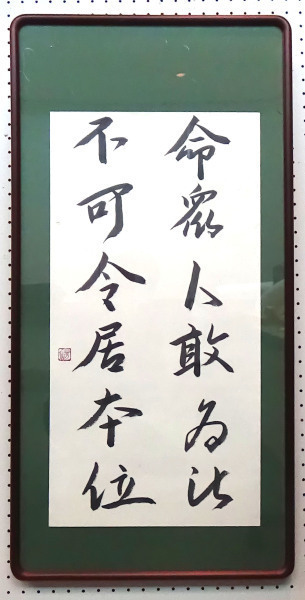 命眾人敢為此
不可令居本位